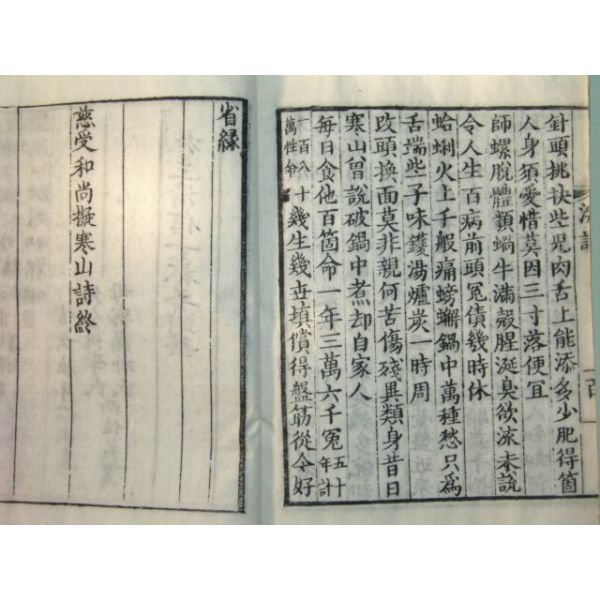 針頭挑抉些児肉舌上能添多少肥得箇
人身須愛惜莫因三寸落便冝
師螺脫體類蝸牛滿殼腥涎臭欲流未說
令人生百病前頭冤債幾時休
蛤蜊火上千般痛螃蠏鍋中萬種愁只爲
舌端些子味鑊湯爐炭一時周
改頭換面莫非親何苦傷殘異類身昔日
寒山曾說破鍋中煮却自家人
每日食他百箇命一年三萬六千冤五十年計
一百八十萬性命幾生幾世塡償得盤筯從今好
省緣
慈受和尚擬寒山詩終
一百